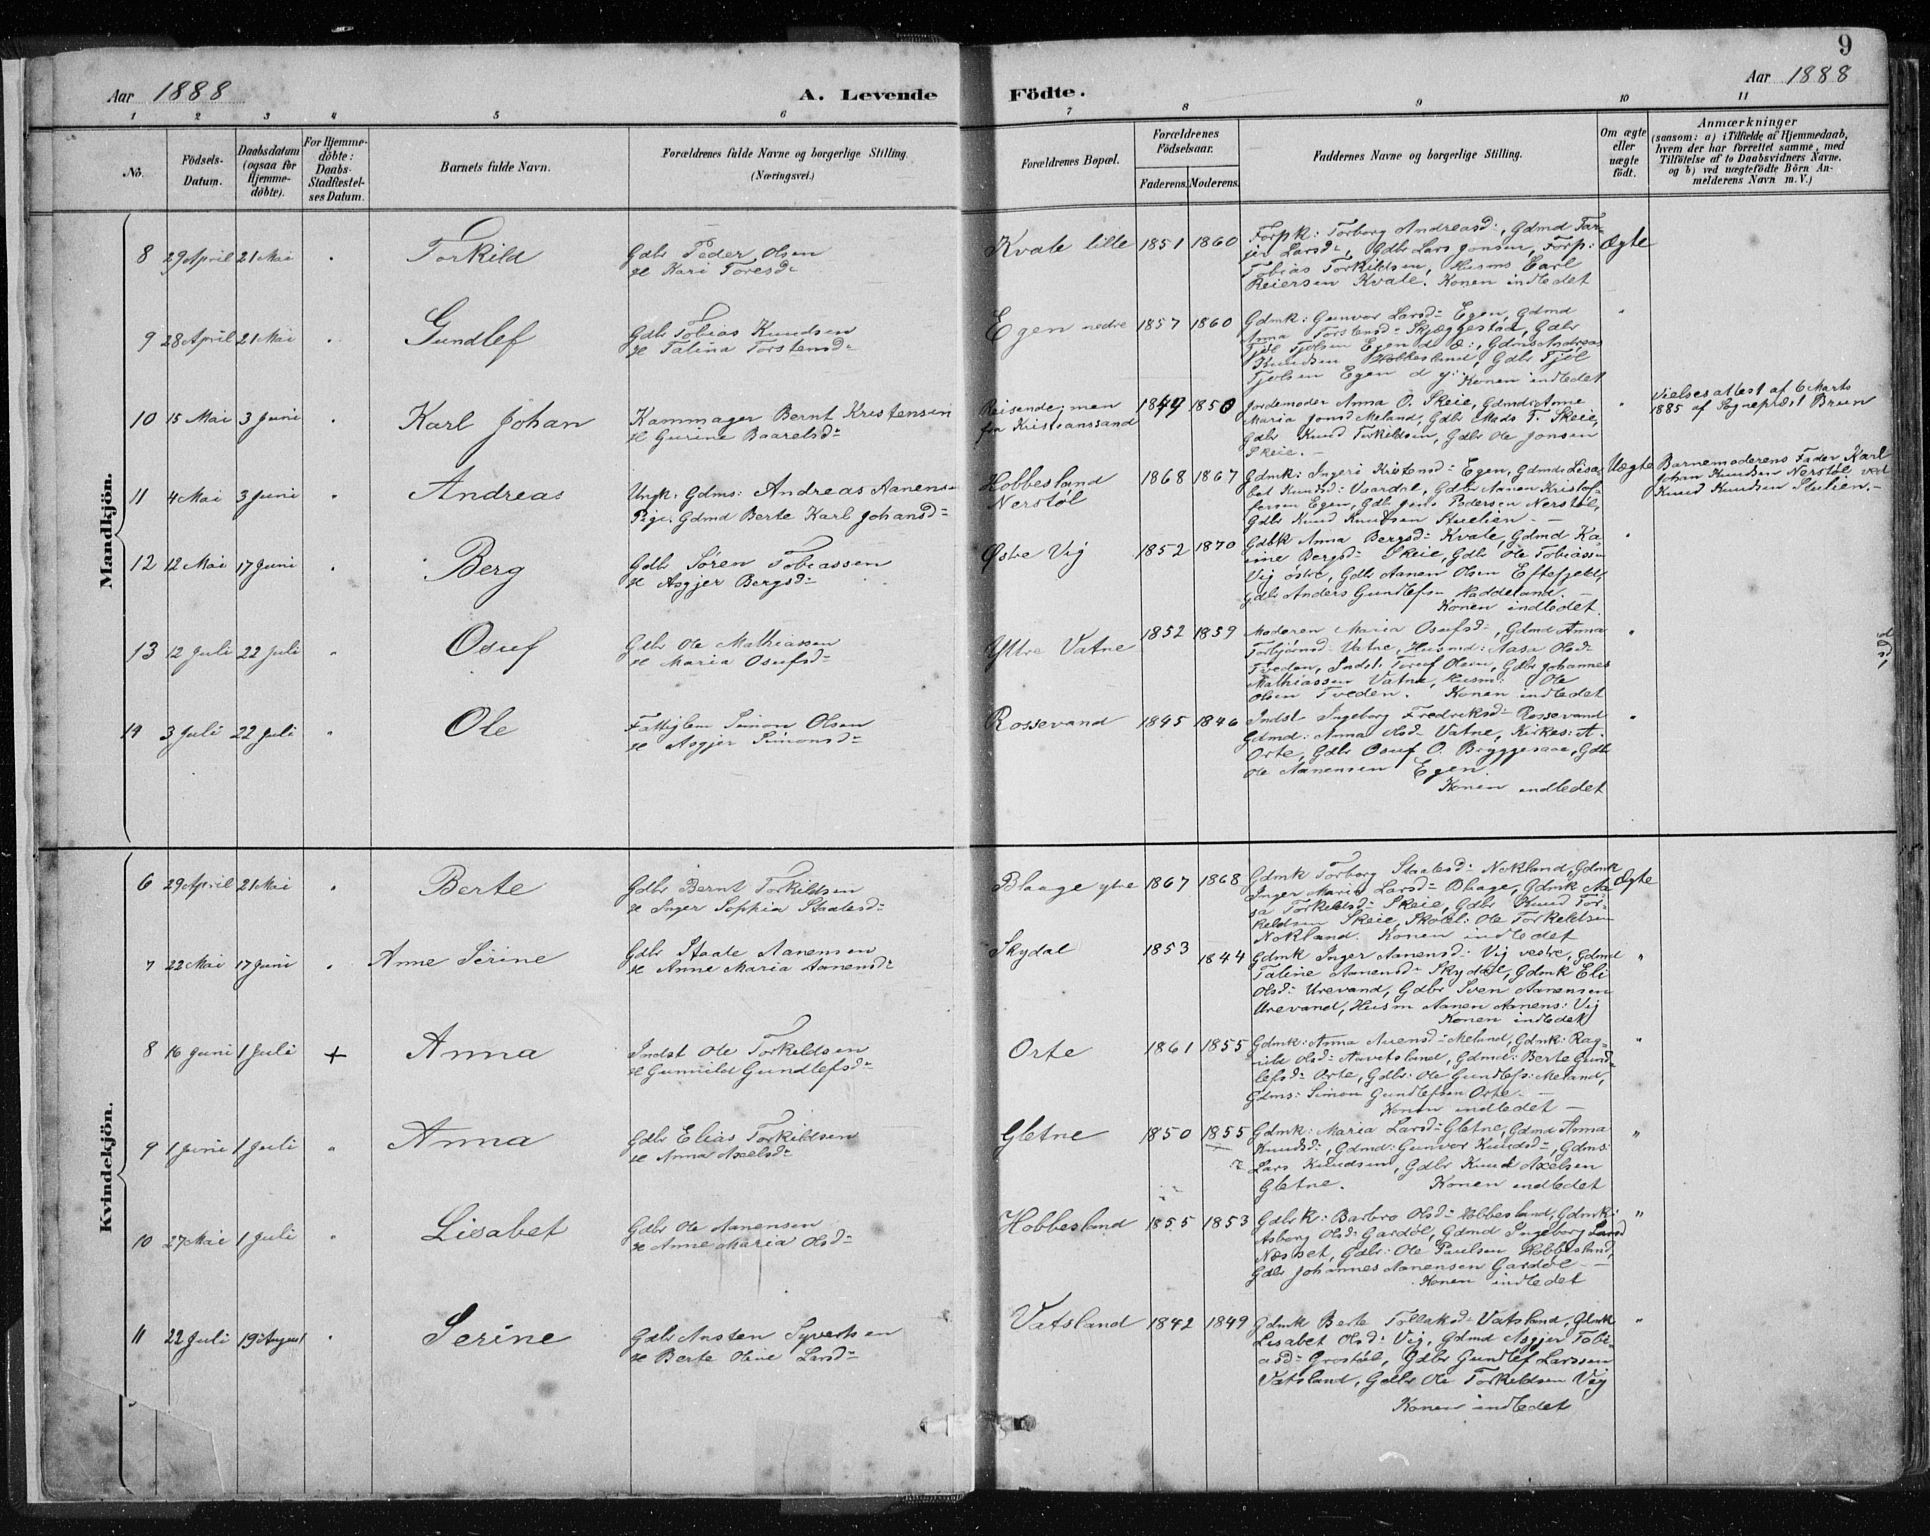 9
Aar 1888
A. Levende Födte.
Aar 1888
1 2 3 4 5 6 7 8 9 10 11
No.
Födsels-Datum.
Daabsdatum (ogsaa for Hjemmedöbte).
For Hjemmedöbte: Daabs-Stadfæstelses Datum.
Barnets fulde Navn.
Forældrenes fulde Navne og borgerlige Stilling.
(Næringsvei.)
Forældrenes Bopæl.
Forældrenes Födselsaar.
Faderens. Moderens.
Faddernes Navne og borgerlige Stilling.
Om ægte eller uægte födt.
Anmærkninger
(saasom: a) i Tilfælde af Hjemmedaab, hvem der har forrettet samme, med Tilföielse af to Daabsvidners Navne. og b) ved uægtefödte Börn Anmelderens Navn m. V.)
Mandkjön.
8 29 April 21 Mai " Torkild
Gdbr Peder Olsen
H Kari Toresd:
Kvale lille 1851 1860
Forpk: Torborg Andreasd:, Gdmd Tar-
jer Larsd:, Gdbr Lars Jonsen, Forp:
Tobias Torkildsen, Husms Carl
Reiersen Kvale. Konen indledet
Ægte
9 28 April 21 Mai " Gundlef
Gdbr Tobias Knudsen
H Talina Torstensd:
Egen nedre 1857 1860
Gdmk: Gunvor Larsd: Egen, Gdmd
Anna Torstensd: Skjæggestad, Gdbr
Tjöl Tjölsen Egen d æ:, Gdms Andreas
Knudsen Hobbesland, Gdbr Tjöl
Tjölsen Egen d y: Konen indledet
"
10 15 Mai 3 Juni " Karl Johan
Kammager Bernt Kristensen
H Gurine Baarelsd:
Reisende; men
fra Kristianssand
1849 1850
Jordemoder Anna O. Skeie, Gdmd: Anne
Maria Jonsd Meland, Gdbr Mads T. Skeie,
Gdbr Knud Torkildsen, Gdbr Ole Jonsen
Skeie. —
"
Vielsesattest af 6 Marts
1885 af Sognepræst Brun
11 4 Mai 3 Juni " Andreas
Ungk: Gdms: Andreas Aanens:
Pige: Gdmd Berte Karl Johansd:
Hobbesland
Nerstøl
1868 1867
Gdmk: Ingeri Kristensd: Egen, Gdmd: Lisa-
bet Knudsd: Vaardal, Gdbr Aanen Kristof-
fersen Egen, Gdbr Jens Pedersen Nerstøl,
Gdbr Knud Knudsen Stulien. —
Uægte
Barnemoderens Fader Karl
Johan Knudsen Nerstøl ved
Knud Knudsen Stulien. —
12 12 Mai 17 Juni " Berg
Gdbr Søren Tobiassen
H Asgjer Bergsd:
Østre Vig 1852 1870
Gdbk Anna Bergsd: Kvale, Gdmd Ka-
rine Bergsd: Skeie, Gdbr Ole Tobiassen
Vig østre, Gdbr Aanen Olsen Eftefjeld,
Gdbr Anders Gundlefsn Haddeland. —
Konen indledet.
"
13 12 Juli 22 Juli " Osuf
Gdbr Ole Mathiassen
H Maria Osufsd:
Yttre Vatne 1852 1859
Moderen Maria Osufsd:, Gdmd Anna
Torbjörnsd: Vatne, Husmd: Aasa Olsd:
Tveden, Indst: Toruf Olsen, Gdbr Johannes
Mathiassen Vatne, Husm: Ole
Olsen Tveden. Konen indledet
"
14 3 Juli 22 Juli " Ole
Fattiglem Simon Olsen
H Asgjer Simonsd:
Rossevand 1845 1846
Indst Ingeborg Fredriksd: Rossevand
Gdmd: Anna Olsd: Vatne, Kirkes: A.
Orte, Gdbr Osuf O. Bryggesaa, Gdbr
Ole Aanensen Egen.
Konen indledet
"
Kvindekjön.
6 29 April 21 Mai " Berte
Gdbr Bernt Torkildsen
H Inger Sophia Staalesd:
Blaage ytre 1867 1868
Gdmk Torborg Staalesd: Nokland, Gdmk
Inger Maria Larsd: Blaage, Gdmk Aa-
sa Torkildsd: Skeie, Gdbr Knud Tor-
keldsen Skeie, Skoll: Ole Torkeldsen
Nokland. Konen indledet
Ægte
7 22 Mai 17 Juni " Anne Serine
Gdbr Staale Aanensen
H Anne Maria Aanensd:
Skydal 1853 1844
Gdmk Inger Aanensd: Vig vestre, Gdmd
Taline Aanensd: Skydal, Gdmk Eli
Olsd: Urevand, Gdbr Sven Aanensen
Urevand, Husm Aanen Aanens: Vig
Konen indledet
"
8 16 Juni 1 Juli + Anna
Indst Ole Torkeldsen
H Gunuld Gundlefsd:
Orte 1861 1855
Gdmk: Anna Auensd: Meland, Gdmk: Rag-
nild Olsd: Aavetsland, Gdmd: Berte Gund-
lefsd: Orte, Gdbr: Ole Gundlefs: Meland,
Gdms: Simon Gundlefsen Orte. —
Konen indledet —
"
9 1 Juni 1 Juli " Anna
Gdbr Elias Torkildsen
H Anna Axelsd:
Gletne 1850 1855
Gdmk: Maria Larsd: Gletne, Gdmd Anna
Knudsd:, Gdmd: Gunvor Knudsd:, Gdms:
Lars Knudsen, Gdbr Knud Axelsen
Gletne. Konen indledet
"
10 27 Mai 1 Juli " Lisabet
Gdbr Ole Aanensen
H Anne Maria Olsd:
Hobbesland 1855 1853
Gdbrk: Barbro Olsd: Hobbesland, Gdmk:
Asborg Olsd: Gardøl, Gdmd Ingeborg Larsd
Næsset, Gdbr: Ole Paulsen Hobbesland,
Gdbr Johannes Aanensen Gardøl —
Konen indledet
"
11 22 Juli 19 August " Serine
Gdbr Ansten Syvertsen
H Berte Oline Larsd:
Vatsland 1842 1849
Gdmk Berte Tollaksd: Vatsland, Gdmk
Lisabet Olsd: Vig, Gdmd Asgjer Tobi-
asd: Grostøl, Gdbr Gundlef Larssen
Vatsland, Gdbr Ole Torkeldsen Vig
Konen indledet
"